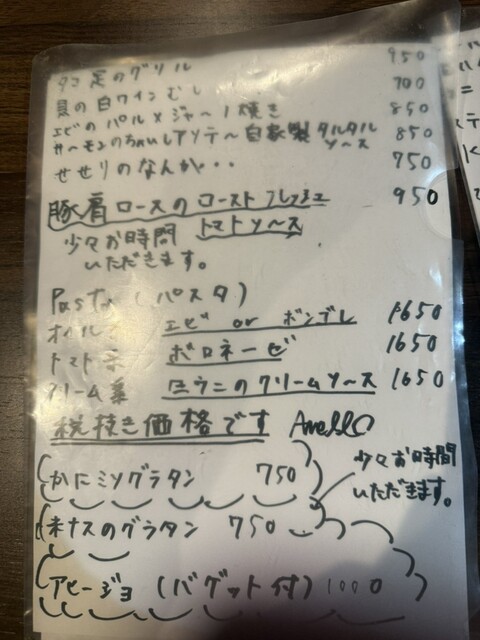 タコ足のグリル 950
貝の白ワインむし 700
エビのパルメジャーノ焼き 850
サーモンの ソテー自家製タルタルソース 850
せせりのなんか・・・ 750
豚肩ロースのロースト フレッシュトマトソース 950
少々お時間
いただきます。
Pasta (パスタ)
オイル系 エビ or ボンゴレ 1650
トマト系 ボロネーゼ 1650
クリーム系 生ウニのクリームソース 1650
税抜き価格です
かにミソグラタン 750
少々お時間
いただきます。
米ナスのグラタン 750
アヒージョ (バゲット付) 1000